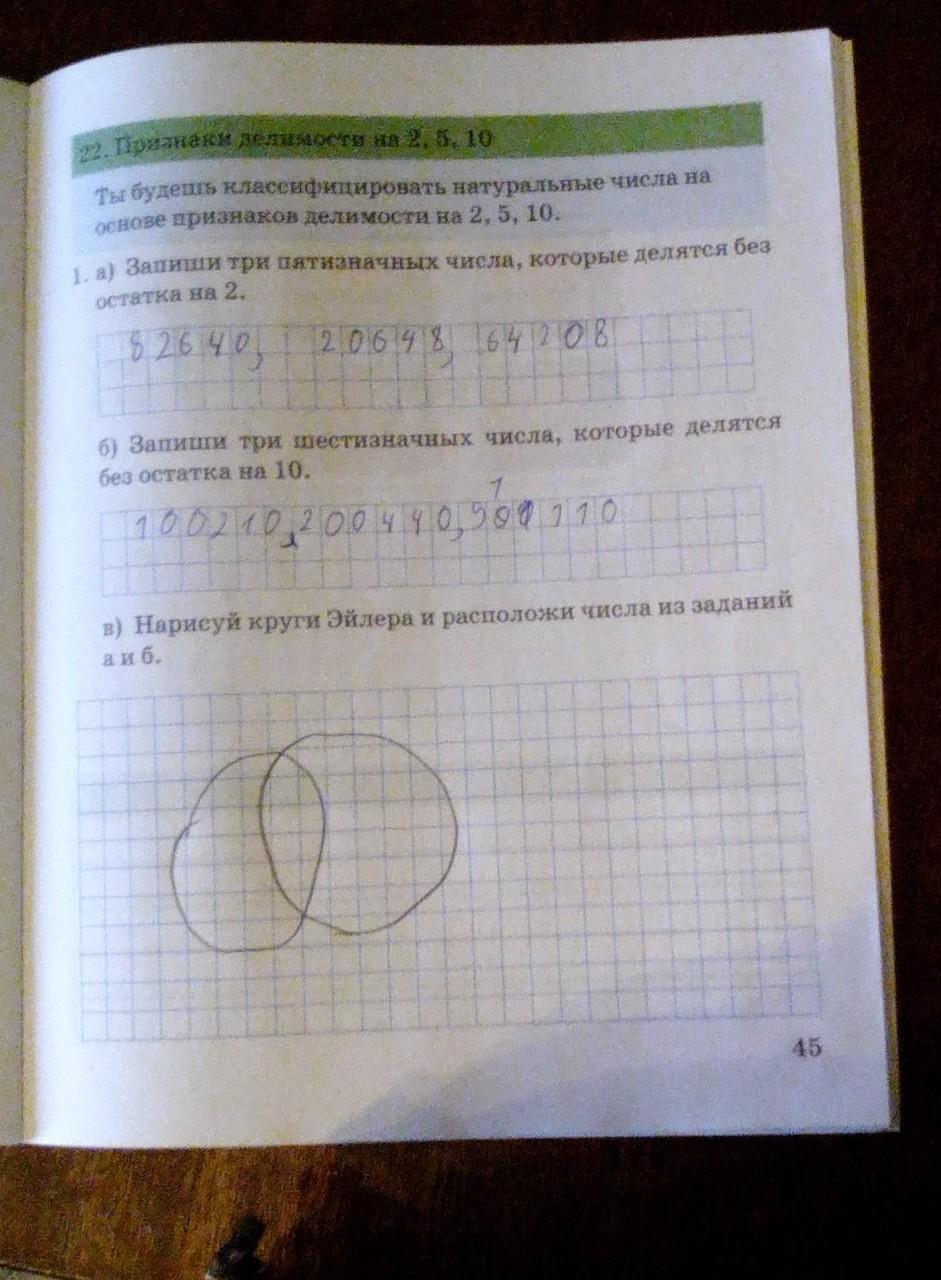 22. Признаки делимости на 2, 5, 10
Ты будешь классифицировать натуральные числа на
основе признаков делимости на 2, 5, 10.
1. а) Запиши три пятизначных числа, которые делятся без
остатка на 2.
82640, 20648, 64208
б) Запиши три шестизначных числа, которые делятся
без остатка на 10.
100210, 200440,
в) Нарисуй круги Эйлера и расположи числа из заданий
а и б.
45